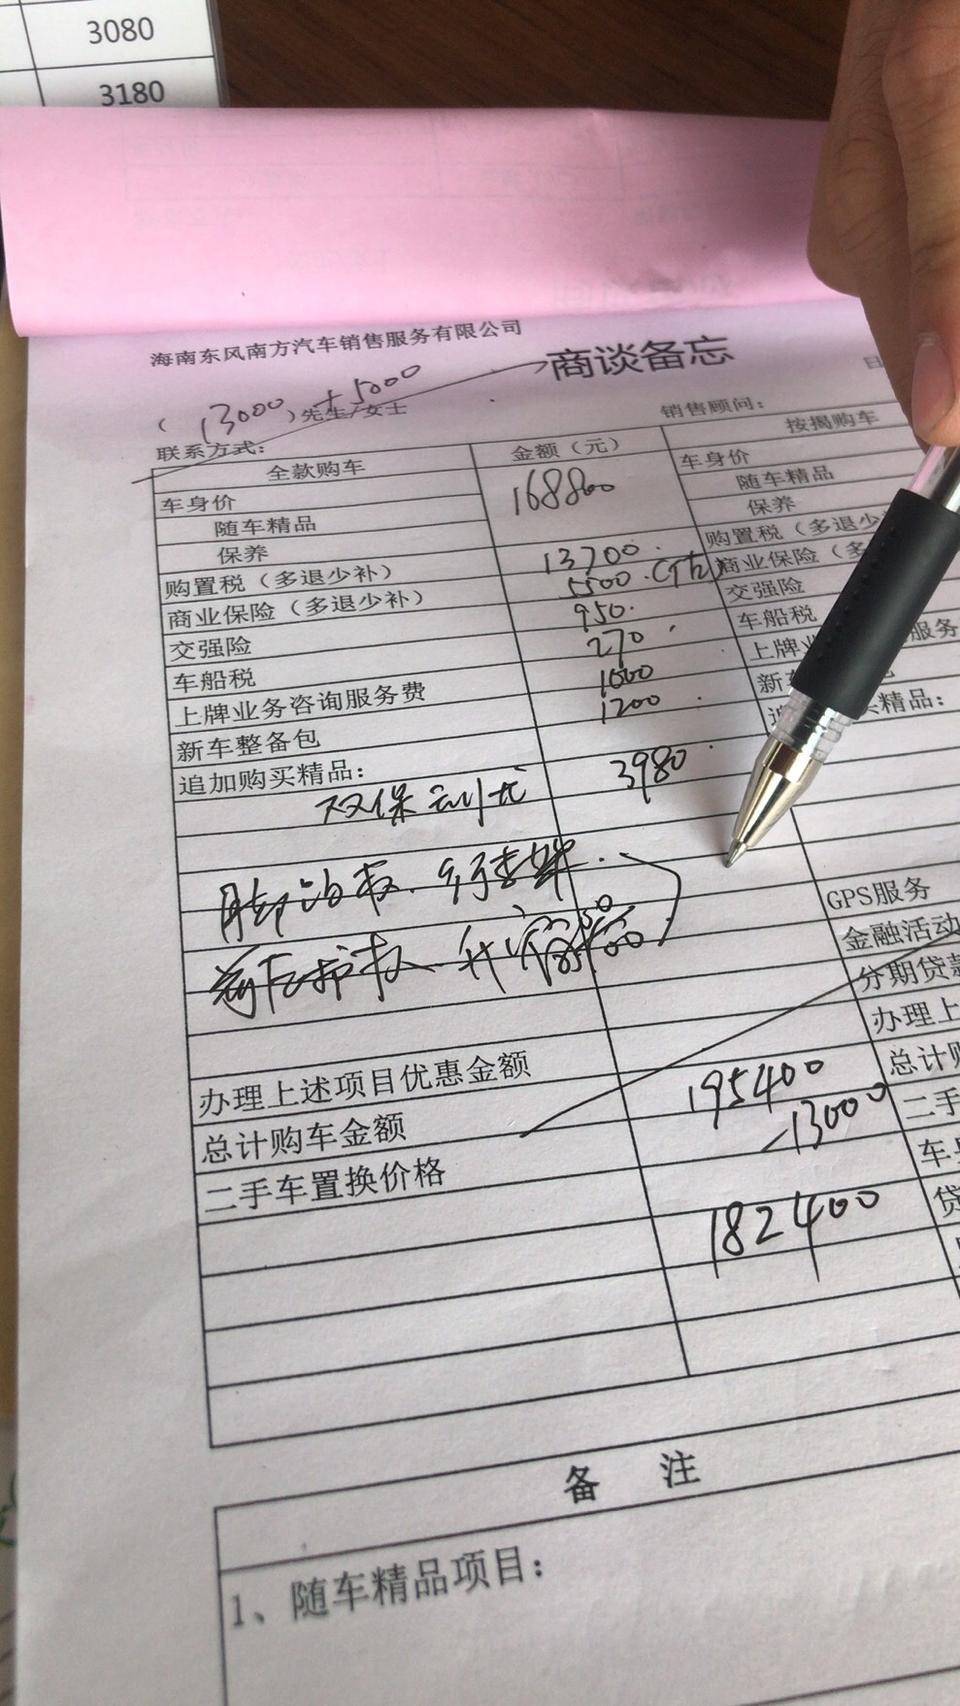 3080
3180
海南东风南方汽车销售服务有限公司
商谈备忘
日
(13000)先生/女士 +5000
销售顾问:
联系方式:
全款购车 金额（元） 按揭购车
车身价 168800 车身价
随车精品 随车精品
保养 保养
购置税（多退少补） 13700 购置税（多退少
商业保险（多退少补） 5500 商业保险（多
交强险 950 交强险
车船税 270 车船税
上牌业务咨询服务费 1000 上牌 服务
新车整备包 1200 新
追加购买精品: 追 精品:
双保 3980
GPS服务
金融活动
分期贷款
办理上述项目优惠金额 办理上
总计购车金额 195400 总计购
二手车置换价格 -13000 二手
车
182400 贷
备 注
1、随车精品项目: